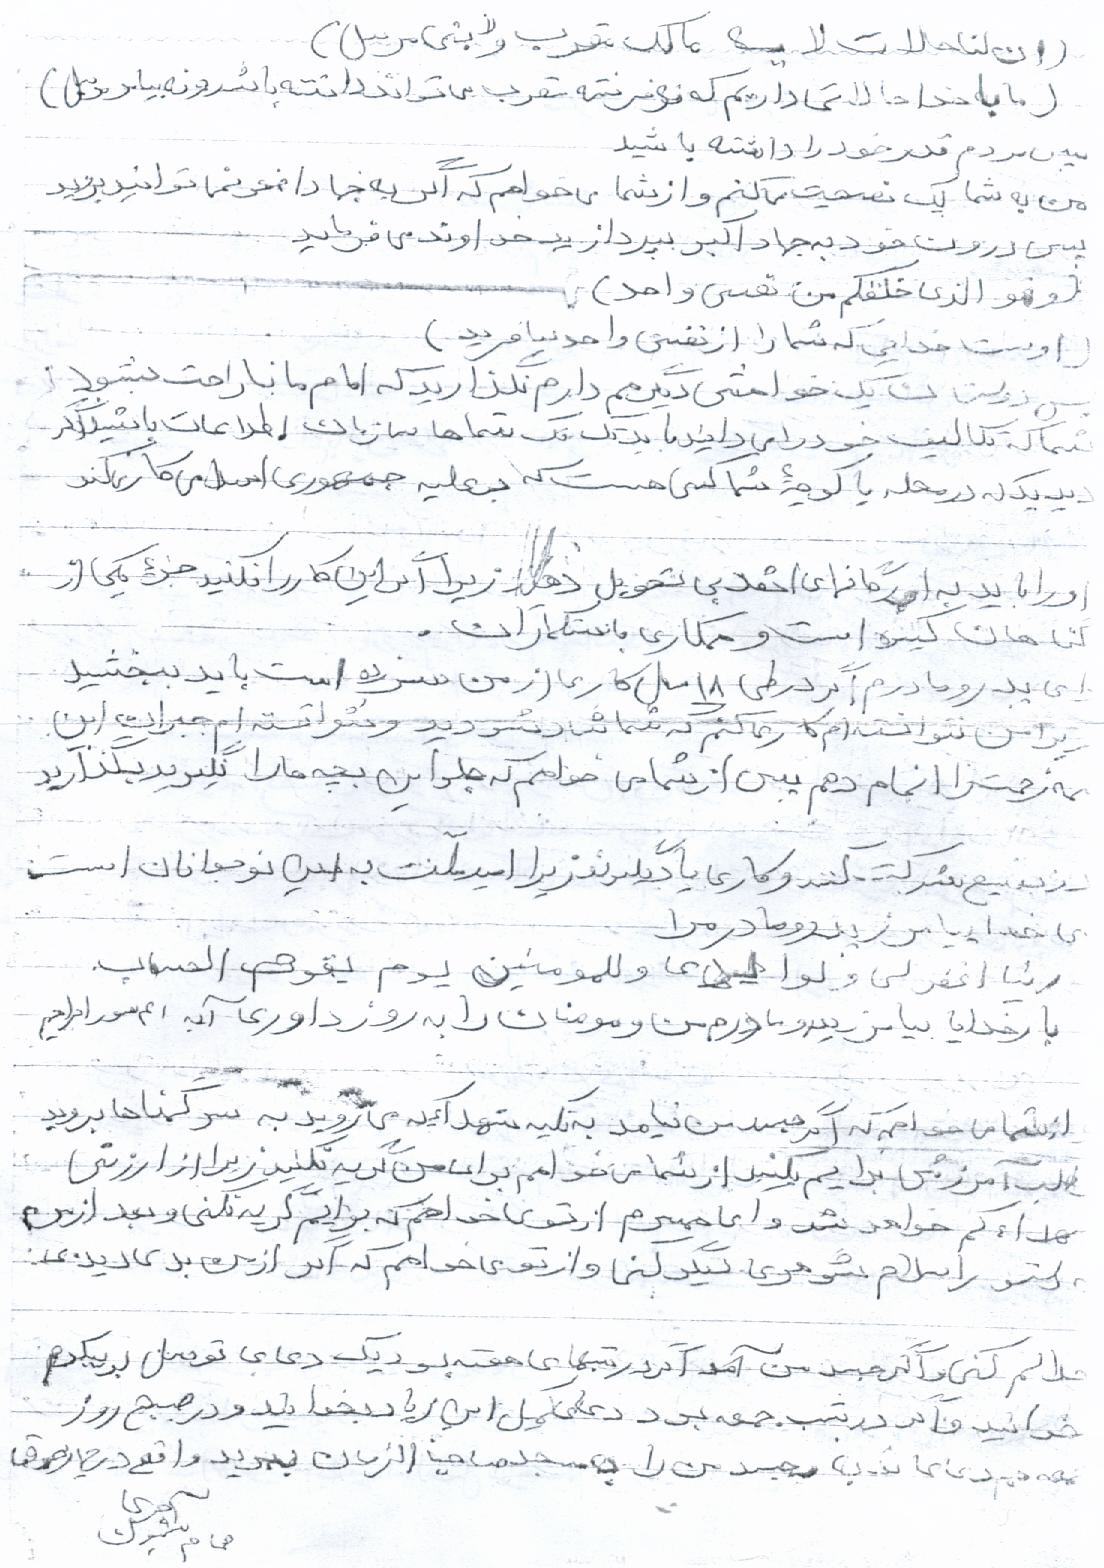 (ان لنا حالات لا یسع ملک مقرب ولا بنی مرسل)
(ما با خدا حالاتی داریم که نه فرشته مقرب می تواند داشته باشد و نه پیامبر مرسل)
پس مردم قدر خود را داشته باشید
من به شما یک نصحیت میکنم و از شما می خواهم که اگر به جهاد اصغر نمی توانید بروید
پس در وت خود به جهاد اکبر بپردازید خداوند می فرماید
(و هو الذی خلقکم من نفسی واحد)
(اوست خدایی که شما را از نفسی واحد بیافرید)
پس یک خواهشی دیگر هم دارم نگذارید که امام ما ناراحت بشود
شما که تکالیف خود را می دانید باید تک تک شماها سازمان اطلاعات باشید اگر
دیدید که در محله یا کوچهٔ شما کسی هست که بر علیه جمهوری اسلامی کار می کند
او را باید به ارگانهای انقلابی تحویل دهید زیرا اگر این کار را نکنید جزء یکی از
گناهان کبیره است و همکاری با ستمکاران .
ای پدر و مادرم اگر در طی ۱۸ سال کاری از من سر زده است باید ببخشید
زیرا من نتوانسته ام کاری کنم که شما شاد شوید و نتوانسته ام جبران این
همه زحمت را انجام دهم پس از شما می خواهم که جلو این بچه ها را نگیرید بگذارید
در بسیج شرکت کنند و کاری یاد گیرند زیرا امید ملت به این نوجوانان است
ای خدا بیامرز پدر و مادر مرا
ربنا اغفر لی و لوالدی و للمومنین یوم یقوم الحساب
بار خدایا بیامرز پدر و مادرم من و مومنان را به روز داوری آیه سوره ابراهیم
از شما می خواهم که اگر جسد من نیامد به تکیه شهدا که می روید به سر گمنامها بروید
طلب آمرزش برایم کنید از شما می خواهم برای من گریه نکنید زیرا از ارزش
شهدا کم خواهد شد و ای همسرم از تو می خواهم که برایم گریه نکنی و بعد از من
دختر را سلام شوهری دیگر کنی و از تو می خواهم که اگر از من بدی دیده ای
حلالم کنی و اگر جسد من آمد اگر در شبهای هفته بود یک دعای توسل بر پیکرم
خوانید و اگر در شب جمعه بود دعای کمیل ابن زیاد بخوانید و در صبح روز
جمعه هم دعای ندبه جسد من را به مسجد صاحب الزمان ببرید واقع در